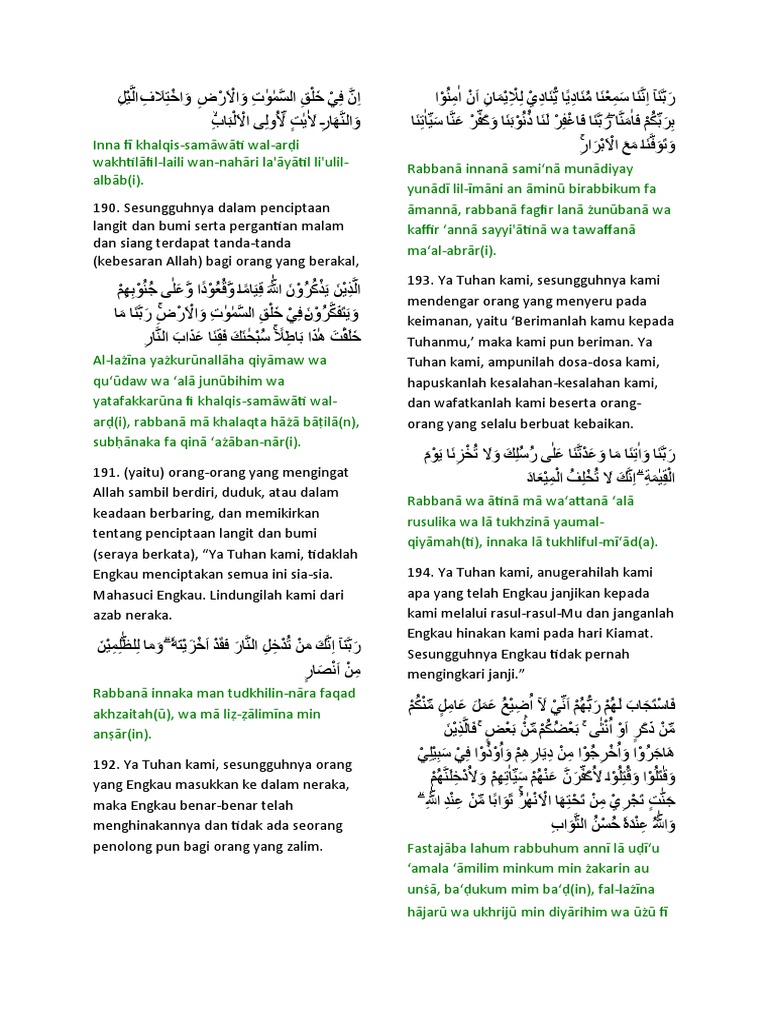 اِنَّ فِيْ خَلْقِ السَّمٰوٰتِ وَالْاَرْضِ وَاخْتِلَافِ الَّيْلِ
وَالنَّهَارِ لَاٰيٰتٍ لِّاُولِى الْاَلْبَابِۙ
Inna fī khalqis-samāwāti wal-arḍi
wakhtilāfil-laili wan-nahāri la'āyātil li'ulil-
albāb(i).
190. Sesungguhnya dalam penciptaan
langit dan bumi serta pergantian malam
dan siang terdapat tanda-tanda
(kebesaran Allah) bagi orang yang berakal,
الَّذِيْنَ يَذْكُرُوْنَ اللّٰهَ قِيَامًا وَّقُعُوْدًا وَّعَلٰى جُنُوْبِهِمْ
وَيَتَفَكَّرُوْنَ فِيْ خَلْقِ السَّمٰوٰتِ وَالْاَرْضِۚ رَبَّنَا مَا
خَلَقْتَ هٰذَا بَاطِلًاۚ سُبْحٰنَكَ فَقِنَا عَذَابَ النَّارِ
Al-lażīna yażkurūnallāha qiyāmaw wa
qu‘ūdaw wa ‘alā junūbihim wa
yatafakkarūna fi khalqis-samāwāti wal-
arḍ(i), rabbanā mā khalaqta hāżā bāṭilā(n),
subḥānaka fa qinā ‘ażāban-nār(i).
191. (yaitu) orang-orang yang mengingat
Allah sambil berdiri, duduk, atau dalam
keadaan berbaring, dan memikirkan
tentang penciptaan langit dan bumi
(seraya berkata), “Ya Tuhan kami, tidaklah
Engkau menciptakan semua ini sia-sia.
Mahasuci Engkau. Lindungilah kami dari
azab neraka.
رَبَّنَآ اِنَّكَ مَنْ تُدْخِلِ النَّارَ فَقَدْ اَخْزَيْتَهٗ ۗ وَمَا لِلظّٰلِمِيْنَ
مِنْ اَنْصَارٍ
Rabbanā innaka man tudkhilin-nāra faqad
akhzaitah(ū), wa mā liẓ-ẓālimīna min
anṣār(in).
192. Ya Tuhan kami, sesungguhnya orang
yang Engkau masukkan ke dalam neraka,
maka Engkau benar-benar telah
menghinakannya dan tidak ada seorang
penolong pun bagi orang yang zalim.
رَبَّنَآ اِنَّنَا سَمِعْنَا مُنَادِيًا يُّنَادِيْ لِلْاِيْمَانِ اَنْ اٰمِنُوْا
بِرَبِّكُمْ فَاٰمَنَّا ۖرَبَّنَا فَاغْفِرْ لَنَا ذُنُوْبَنَا وَكَفِّرْ عَنَّا سَيِّاٰتِنَا
وَتَوَفَّنَا مَعَ الْاَبْرَارِۚ
Rabbanā innanā sami‘nā munādiyay
yunādī lil-īmāni an āminū birabbikum fa
āmannā, rabbanā fagfir lanā żunūbanā wa
kaffir ‘annā sayyi'ātinā wa tawaffanā
ma‘al-abrār(i).
193. Ya Tuhan kami, sesungguhnya kami
mendengar orang yang menyeru pada
keimanan, yaitu ‘Berimanlah kamu kepada
Tuhanmu,’ maka kami pun beriman. Ya
Tuhan kami, ampunilah dosa-dosa kami,
hapuskanlah kesalahan-kesalahan kami,
dan wafatkanlah kami beserta orang-
orang yang selalu berbuat kebaikan.
رَبَّنَا وَاٰتِنَا مَا وَعَدْتَّنَا عَلٰى رُسُلِكَ وَلَا تُخْزِنَا يَوْمَ
الْقِيٰمَةِ ۗ اِنَّكَ لَا تُخْلِفُ الْمِيْعَادَ
Rabbanā wa ātinā mā wa‘attanā ‘alā
rusulika wa lā tukhzinā yaumal-
qiyāmah(ti), innaka lā tukhliful-mī‘ād(a).
194. Ya Tuhan kami, anugerahilah kami
apa yang telah Engkau janjikan kepada
kami melalui rasul-rasul-Mu dan janganlah
Engkau hinakan kami pada hari Kiamat.
Sesungguhnya Engkau tidak pernah
mengingkari janji.”
فَاسْتَجَابَ لَهُمْ رَبُّهُمْ اَنِّيْ لَآ اُضِيْعُ عَمَلَ عَامِلٍ مِّنْكُمْ
مِّنْ ذَكَرٍ اَوْ اُنْثٰى ۚ بَعْضُكُمْ مِّنْۢ بَعْضٍ ۚ فَالَّذِيْنَ
هَاجَرُوْا وَاُخْرِجُوْا مِنْ دِيَارِهِمْ وَاُوْذُوْا فِيْ سَبِيْلِيْ
وَقٰتَلُوْا وَقُتِلُوْا لَاُكَفِّرَنَّ عَنْهُمْ سَيِّاٰتِهِمْ وَلَاُدْخِلَنَّهُمْ
جَنّٰتٍ تَجْرِيْ مِنْ تَحْتِهَا الْاَنْهٰرُۚ ثَوَابًا مِّنْ عِنْدِ اللّٰهِ ۗ
وَاللّٰهُ عِنْدَهٗ حُسْنُ الثَّوَابِ
Fastajāba lahum rabbuhum annī lā uḍī‘u
‘amala ‘āmilim minkum min żakarin au
unṡā, ba‘ḍukum mim ba‘ḍ(in), fal-lażīna
hājarū wa ukhrijū min diyārihim wa ūżū fī